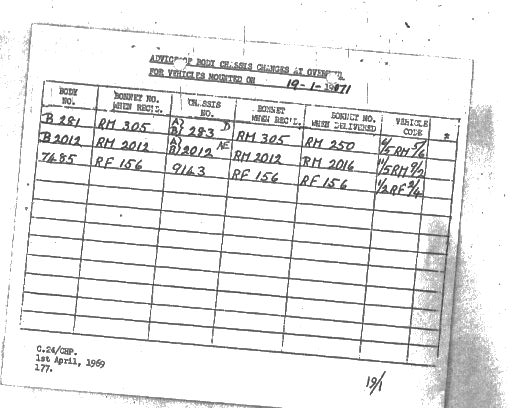 ADVICE OF BODY CHASSIS CHANGES AT OVERHAUL
FOR VEHICLES MOUNTED ON 19-1-1971
BODY NO. BONNET NO. WHEN REC'D. CHASSIS NO. BONNET WHEN REC'D. BONNET NO. WHEN DELIVERED VEHICLE CODE *
B 281 RM 305 A) B) 283 D RM 305 RM 250 4/5RM5/6
B2012 RM 2012 A) B) 2012 AE RM2012 RM 2016 11/5RM9/2
7485 RF 156 9143 RF 156 RF 156 1/2RF2/4
C.24/CHP.
1st April, 1969
177.
19/1